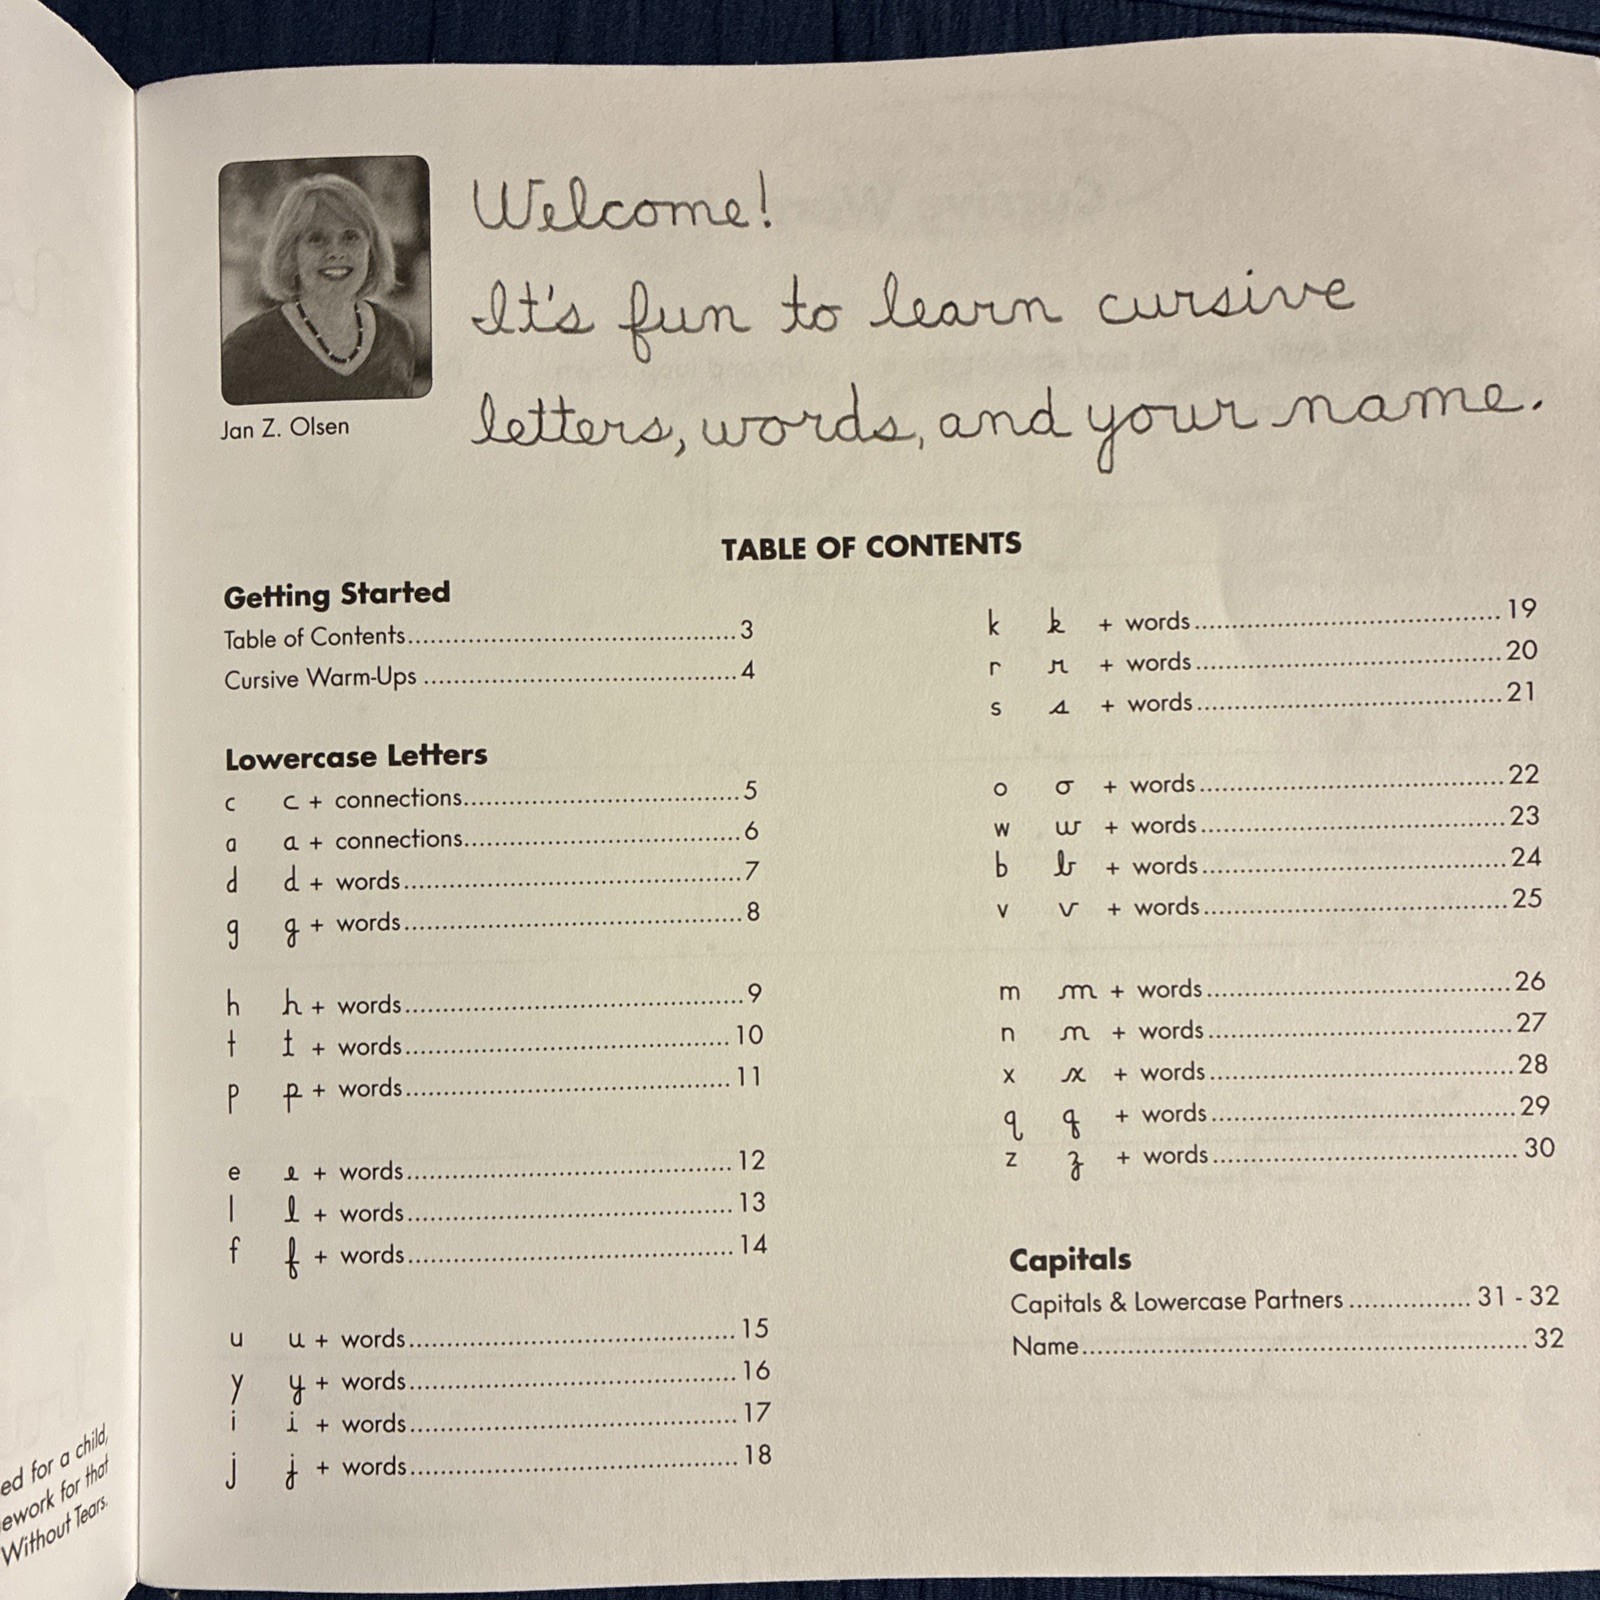 Welcome!
It's fun to learn cursive
letters, words, and your name.
Jan Z. Olsen
TABLE OF CONTENTS
Getting Started
Table of Contents..........3
Cursive Warm-Ups..........4
Lowercase Letters
c c + connections..........5
a a + connections..........6
d d + words..........7
g g + words..........8
h h + words..........9
t t + words..........10
p p + words..........11
e e + words..........12
l l + words..........13
f f + words..........14
u u + words..........15
y y + words..........16
i i + words..........17
j j + words..........18
k k + words..........19
r r + words..........20
s s + words..........21
o o + words..........22
w w + words..........23
b b + words..........24
v v + words..........25
m m + words..........26
n n + words..........27
x x + words..........28
q q + words..........29
z z + words..........30
Capitals
Capitals & Lowercase Partners..........31 - 32
Name..........32
ed for a child,
ework for that
Without Tears.